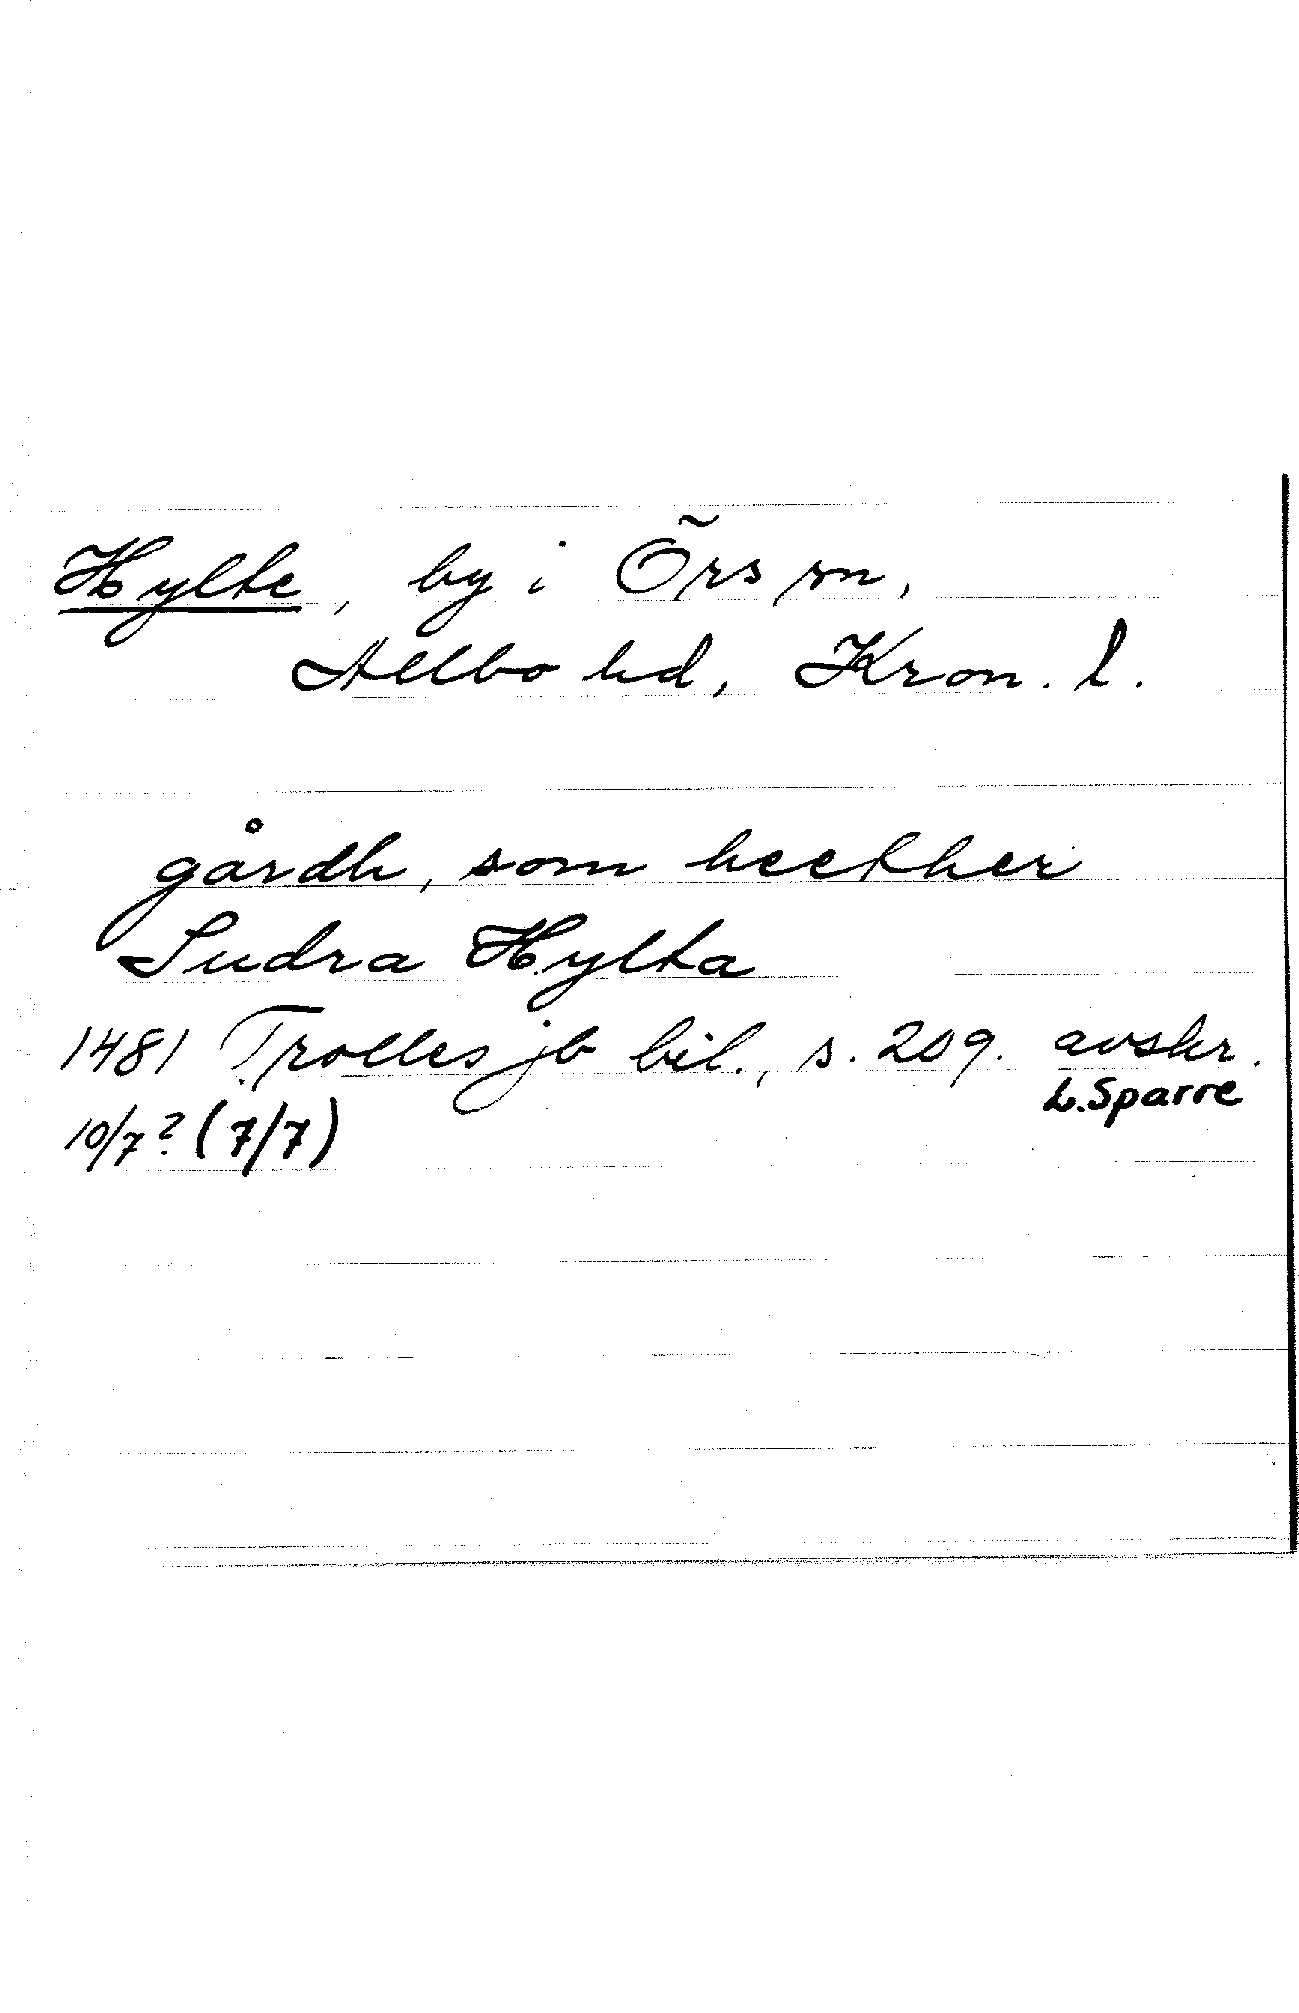 Hylte, by i Örs sn,
Allbo hd, Kron. l.
gårdh, som heether
Sudra Hylta
1481 Trolles jb bil., s. 209. avskr.
L. Sparre
10/7? (7/7)